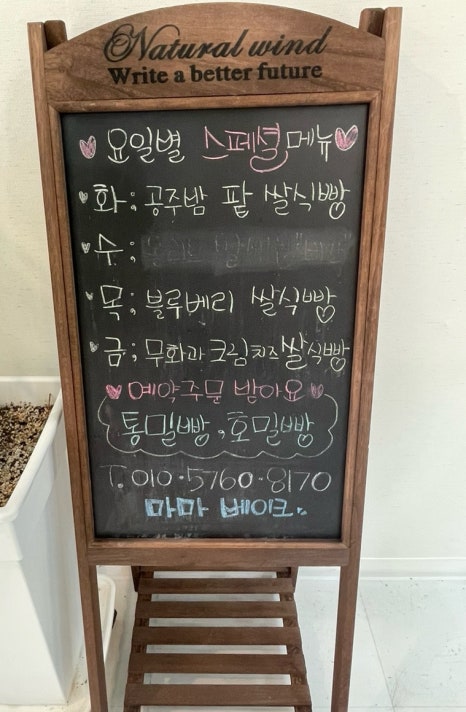 Natural wind
Write a better future
요일별 스페셜 메뉴
화; 공주밤 팥 쌀식빵
수;
목; 블루베리 쌀식빵
금; 무화과크림치즈쌀식빵
예약주문 받아요
통밀빵, 호밀빵
T. 010·5760·8170
마마 베이크.